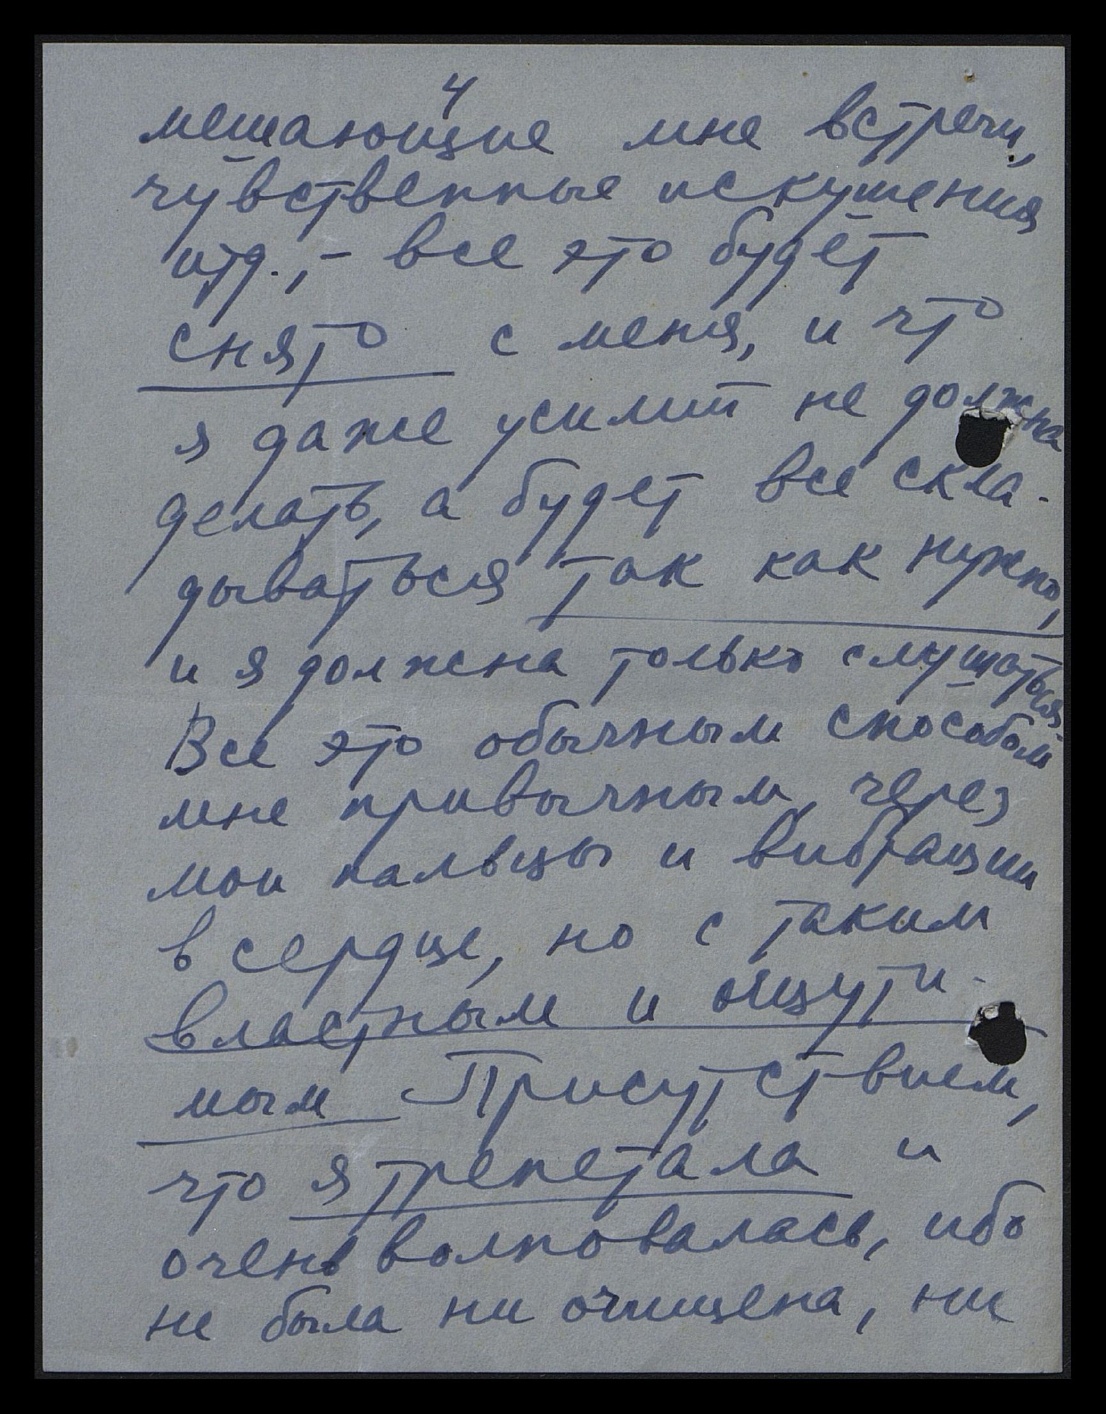 4
мешающие мне встречи,
чувственные искушения
итд., – все это будет
снято с меня, и что
я даже усилий не должна
делать, а будет все скла-
дываться так как нужно,
и я должна только слушаться.
Все это обычным способом
мне привычным, через
мои пальцы и вибрации
в сердце, но с таким
властным и ощути-
мым Присутствием,
что я трепетала и
очень волновалась, ибо
не была ни очищена, ни